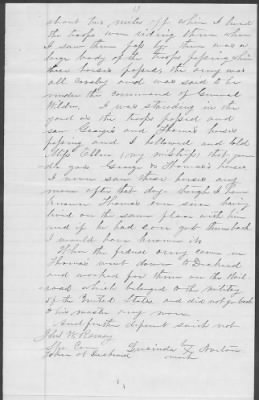 13
about two miles off when I heard
the troops were riding them when
I saw them pass by. There was a
large body of the troops passing when
these horses passed, the army was
all cavalry and was said to be
under the command of General
Wilder, I was standing in the
yard as the troops passed and
saw George's and Thomas's horses
passing and I hollowed and told
Miss Ellen my mistress, that yon-
der goes George & Thomas's horses
I never saw these horses any
more after that day though I have
known Thomas ever since having
lived on the same place with him
and if he had ever got them back
I would have known it.
When the federal army came in
Thomas went down to Dechard
and worked for them on the Rail-
road which belonged to the military
of the United States and did not go back
to his master any more.
And further deponent saith not
John W. Ramsey
Spe Com
Taken at Dechard
Lucinda her X mark Norton